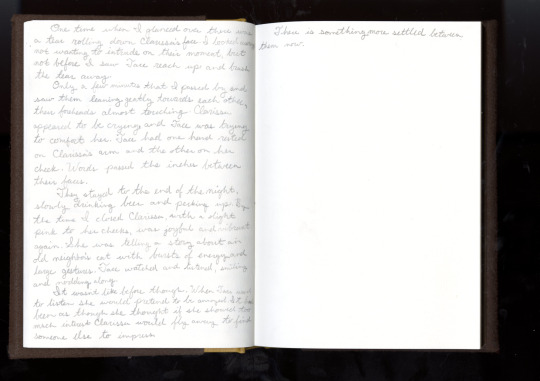 One time when I glanced over there was
a tear rolling down Clarissa's face. I looked away
not wanting to intrude on their moment, but
not before I saw Jace reach up and brush
the tear away.
Only a few minutes that I passed by and
saw them leaning gently towards each other,
their foreheads almost touching. Clarissa
appeared to be crying and Jace was trying
to comfort her. Jace had one hand rested
on Clarissa's arm and the other on her
cheek. Words passed the inches between
their faces.
They stayed to the end of the night,
slowly drinking beer and perking up. By
the time I closed Clarissa, with a slight
pink to her cheeks, was joyful and vibrant
again. She was telling a story about an
old neighbor's cat with bursts of energy and
large gestures. Jace watched and listened, smiling
and nodding along.
It wasn't like before though. When Jace used
to listen she would pretend to be annoyed. It
been as though she thought if she showed too
much interest Clarissa would fly away to find
someone else to impress.
There is something more settled between
them now.